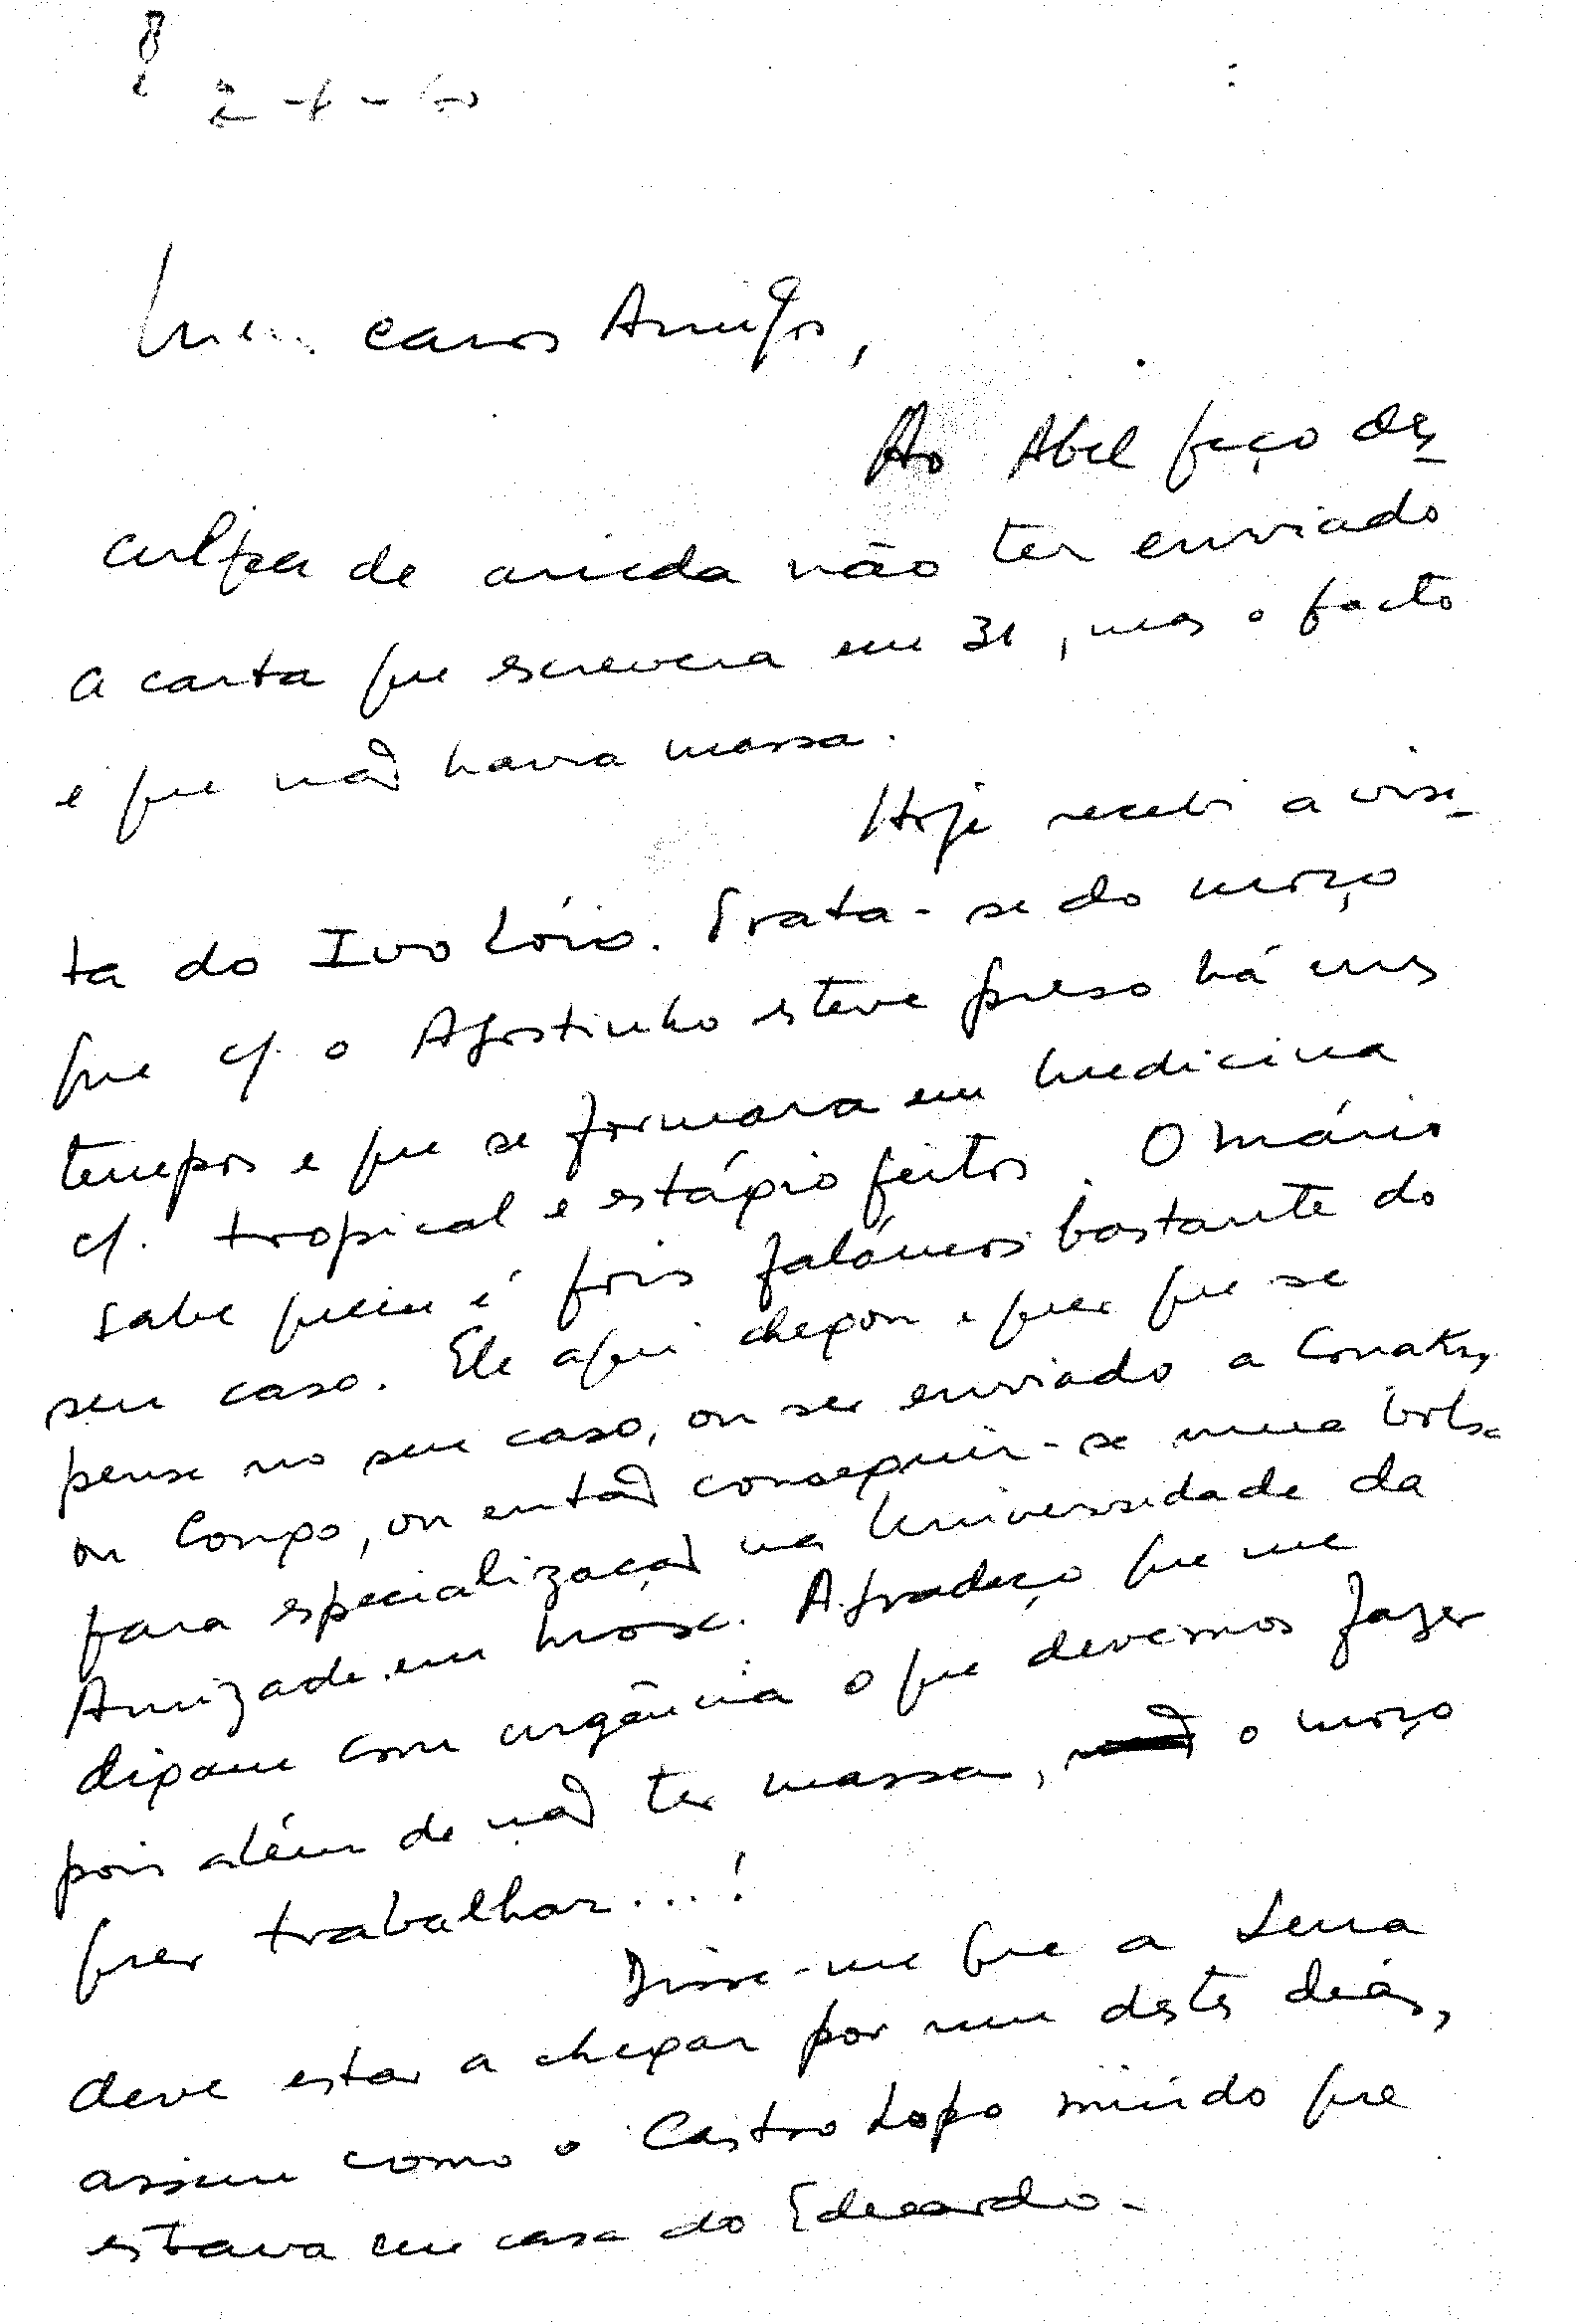 8
Meus caros Amigos,
Ao Abel peço des-
culpa de ainda não ter enviado
a carta que escrevera em 31, mas o facto
é que não havia massa.
Hoje recebi a visi-
ta do Ivo Lório. Trata-se do moço
que c/. o Agostinho esteve preso há uns
tempos e que se formara em medicina
c/. tropical e estágio feitos. O Mário
sabe quem é pois falámos bastante do
seu caso. Ele aqui chegou e quer que se
pense no seu caso, ou ser enviado a Conakry
ou Congo, ou então conseguir-se uma bolsa
para especialização na Universidade da
Amizade em Mosc. Agradeço que me
digam com urgência o que devemos fazer
pois além de não ter massa, o moço
quer trabalhar...!
Disse-me que a Lena
deve estar a chegar por um destes dias,
assim como o Castro Lopo miúdo que
estava em casa do Eduardo.-